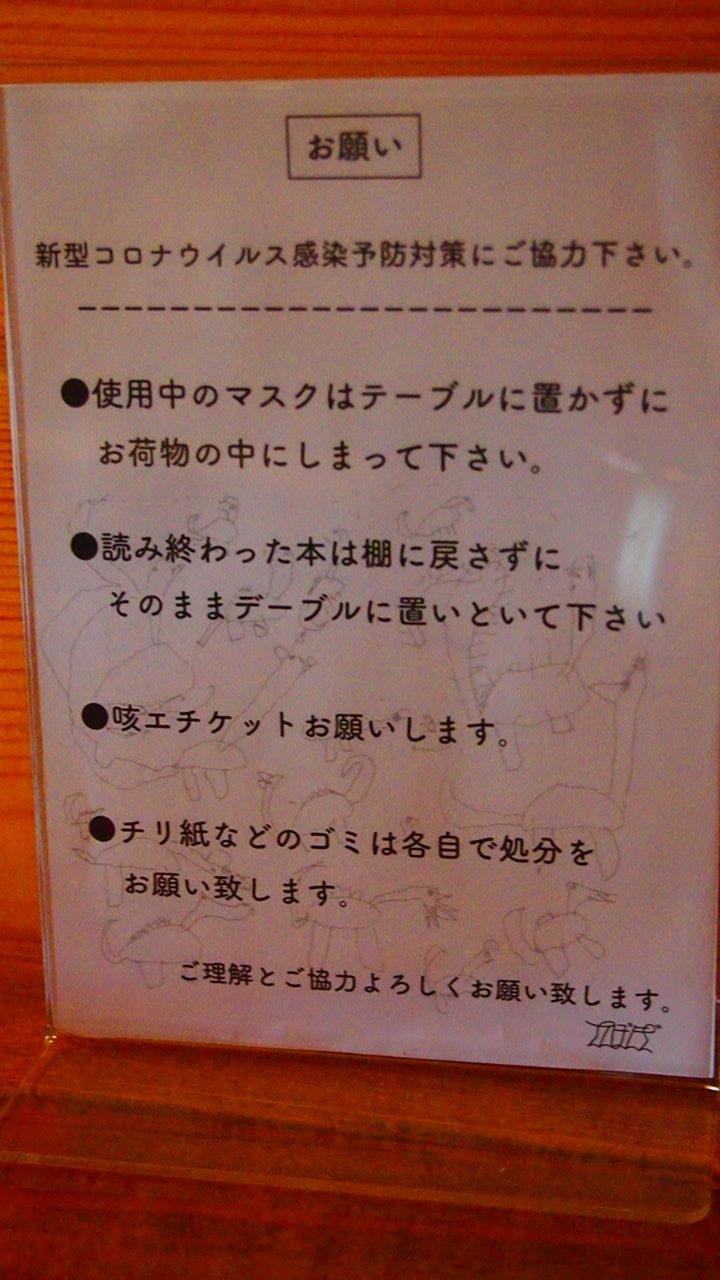 お願い
新型コロナウイルス感染予防対策にご協力下さい。
●使用中のマスクはテーブルに置かずに
お荷物の中にしまって下さい。
●読み終わった本は棚に戻さずに
そのままデーブルに置いといて下さい
●咳エチケットお願いします。
●チリ紙などのゴミは各自で処分を
お願い致します。
ご理解とご協力よろしくお願い致します。